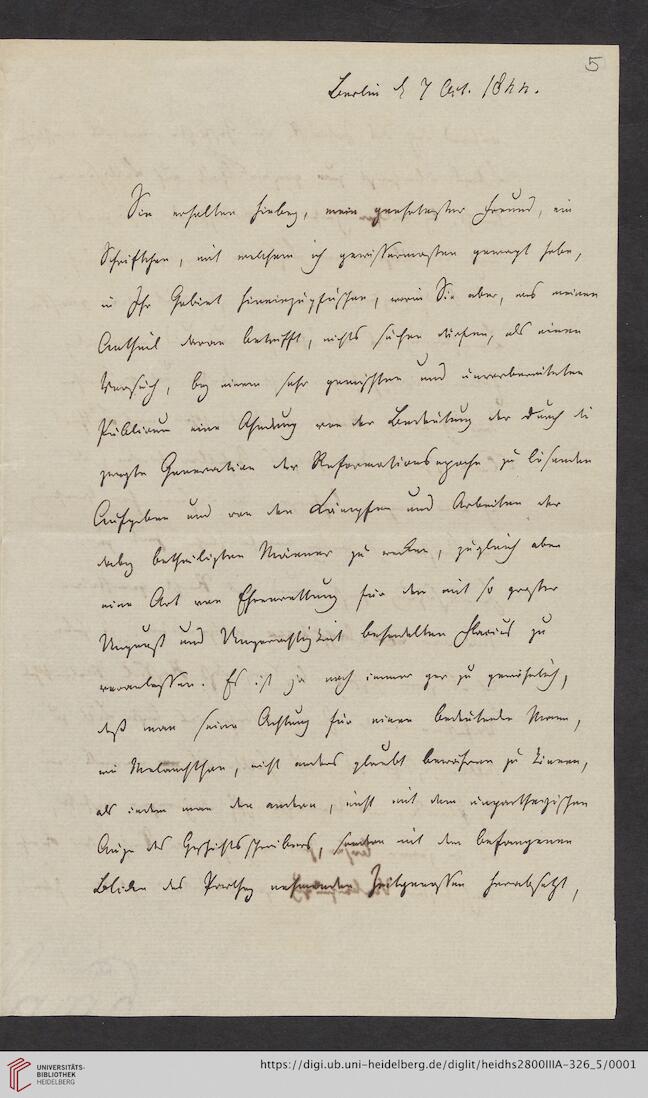 5
Berlin d 7 Oct. 1844.
Sie erhalten hiebey, mein geehrtester Freund, ein
Schriftchen, mit welchem ich gewissermassen gewagt habe,
in Ihr Gebiet hineinzupfuschen, worin Sie aber, was meinen
Antheil daran betrifft, nichts suchen dürfen, als einen
Versuch, bey einem sehr gemischten und unvorbereiteten
Publicum eine Ahndung von der Bedeutung der durch die
zweyte Generation der Reformationsepoche zu lösenden
Aufgaben und von den Kämpfen und Arbeiten der
dabey betheiligten Männer zu wecken, zugleich aber
eine Art von Ehrenrettung für den mit so grosser
Ungunst und Ungerechtigkeit behandelten Flacius zu
veranlassen. Es ist ja noch immer gar zu gewöhnlich,
daß man seine Achtung für einen bedeutenden Mann,
wie Melanchthon, nicht anders glaubt bewähren zu können,
als indem man den andern, nicht mit dem unpartheyischen
Auge des Geschichtsschreibers, sondern mit den befangenen
Blicken des Parthey nehmenden Zeitgenossen herabsetzt,
UNIVERSITÄTS-
BIBLIOTHEK
HEIDELBERG
https://digi.ub.uni-heidelberg.de/diglit/heidhs2800IIIA-326_5/0001